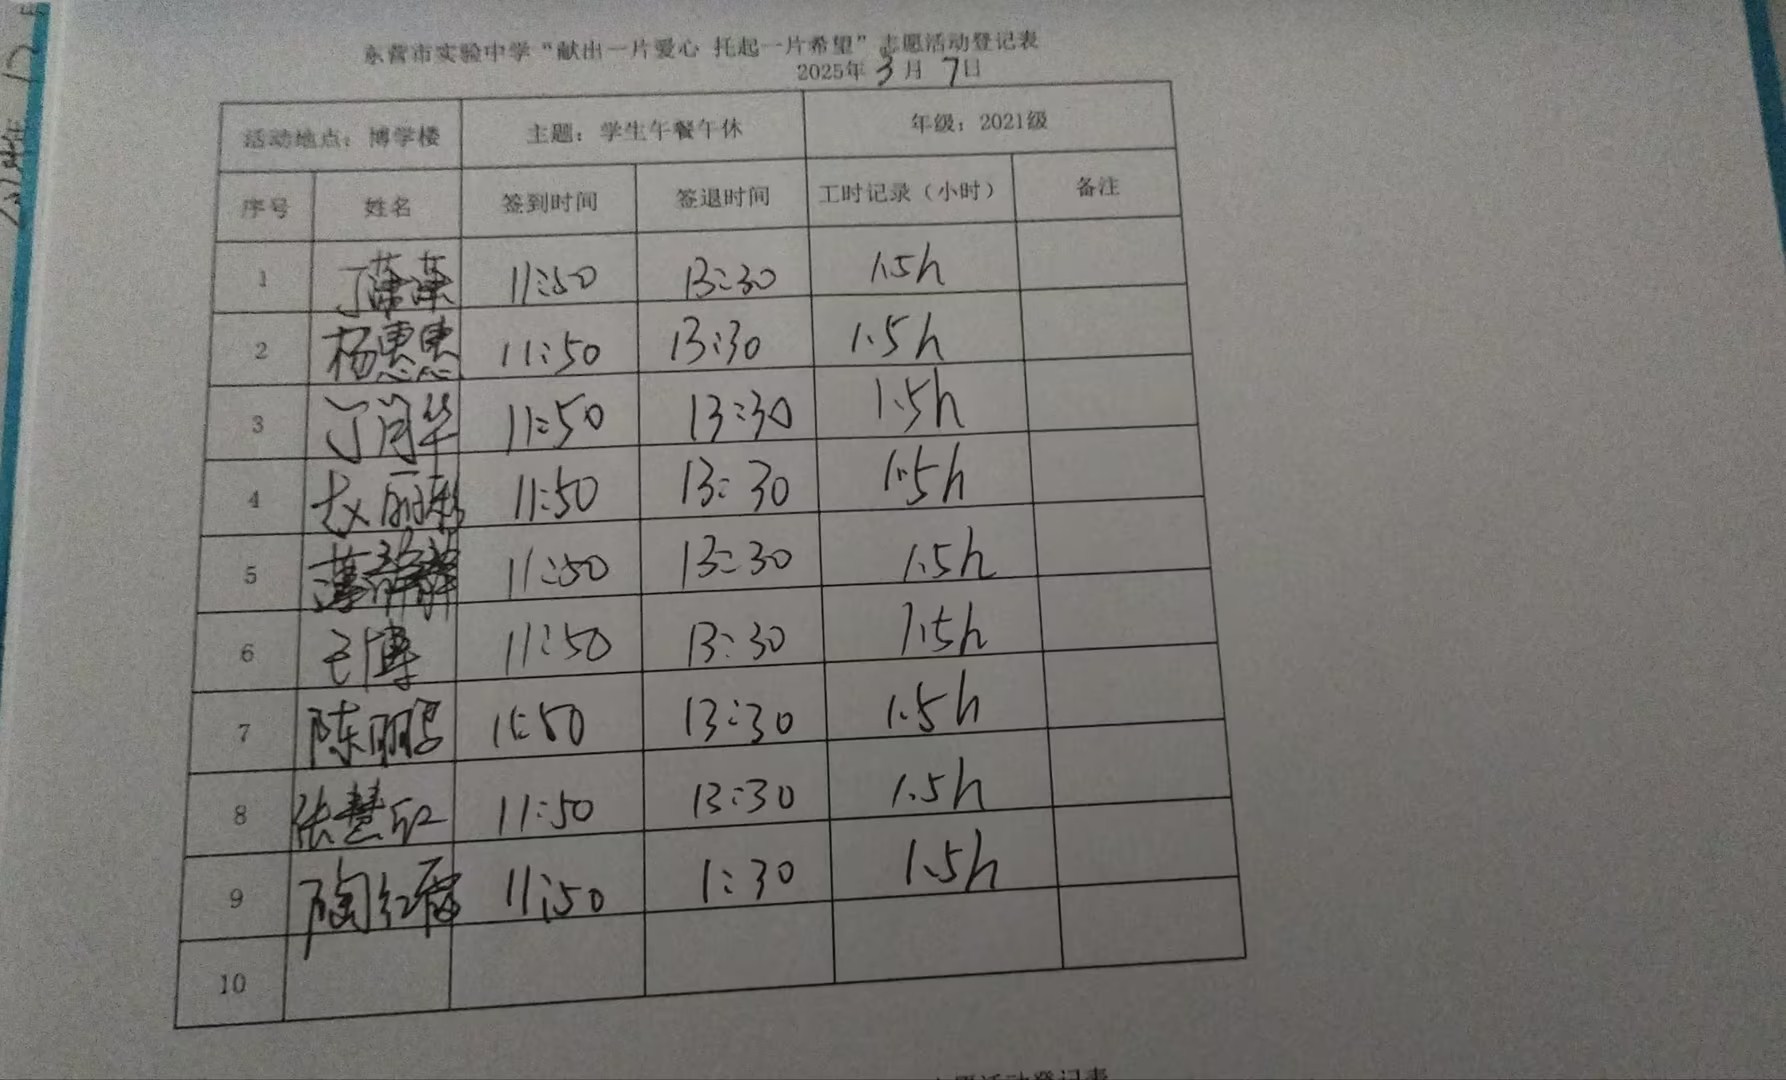 东营市实验中学“献出一片爱心 托起一片希望”志愿活动登记表
2025年 3 月 7日
活动地点：博学楼 主题：学生午餐午休 年级：2021级
序号 姓名 签到时间 签退时间 工时记录（小时） 备注
1 丁 11:50 13:30 1.5h
2 杨惠惠 11:50 13:30 1.5h
3 丁 华 11:50 13:30 1.5h
4 赵丽 11:50 13:30 1.5h
5 11:50 13:30 1.5h
6 王博 11:50 13:30 1.5h
7 陈丽 11:50 13:30 1.5h
8 张慧红 11:50 13:30 1.5h
9 陶红霞 11:50 1:30 1.5h
10
志愿活动登记表